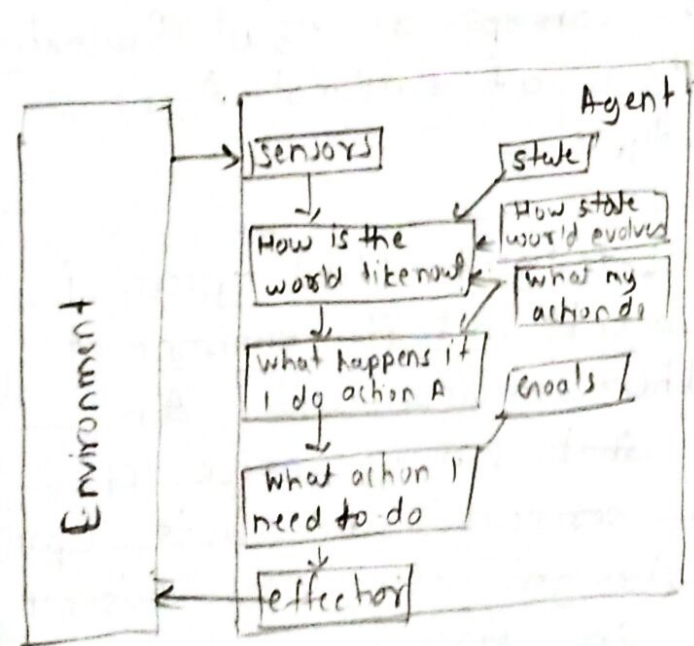 Agent
sensors
state
How is the
world like now
How state
world evolves
what my
action do
what happens if
I do action A
Goals
what action I
need to do
effector
Environment